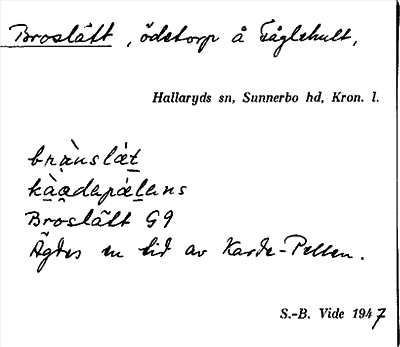 Broslätt, ödetorp å Fåglehult,
Hallaryds sn, Sunnerbo hd, Kron. l.
brạ̀nslǽt̲
kà̲ạdapǽl̲ans
Broslätt G9
Ägdes en tid av Karde-Pellen.
S.-B. Vide 1947